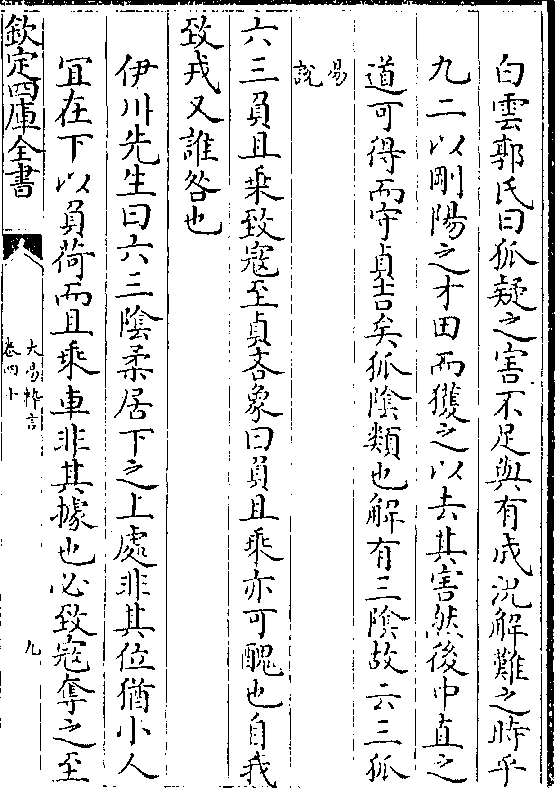 白雲郭氏曰狐疑之害不足與有成況解難之時乎
九二以剛陽之才田而獲之以去其害然後中直之
道可得而守貞吉矣狐陰類也解有三陰故云三狐
易
說
六三負且乗致寇至貞吝象曰負且乗亦可醜也自我
致戎又誰咎也
伊川先生曰六三陰柔居下之上處非其位猶小人
宜在下以負荷而且乗車非其據也必致寇奪之至
欽定四庫全書
大易粹言
卷四十
九